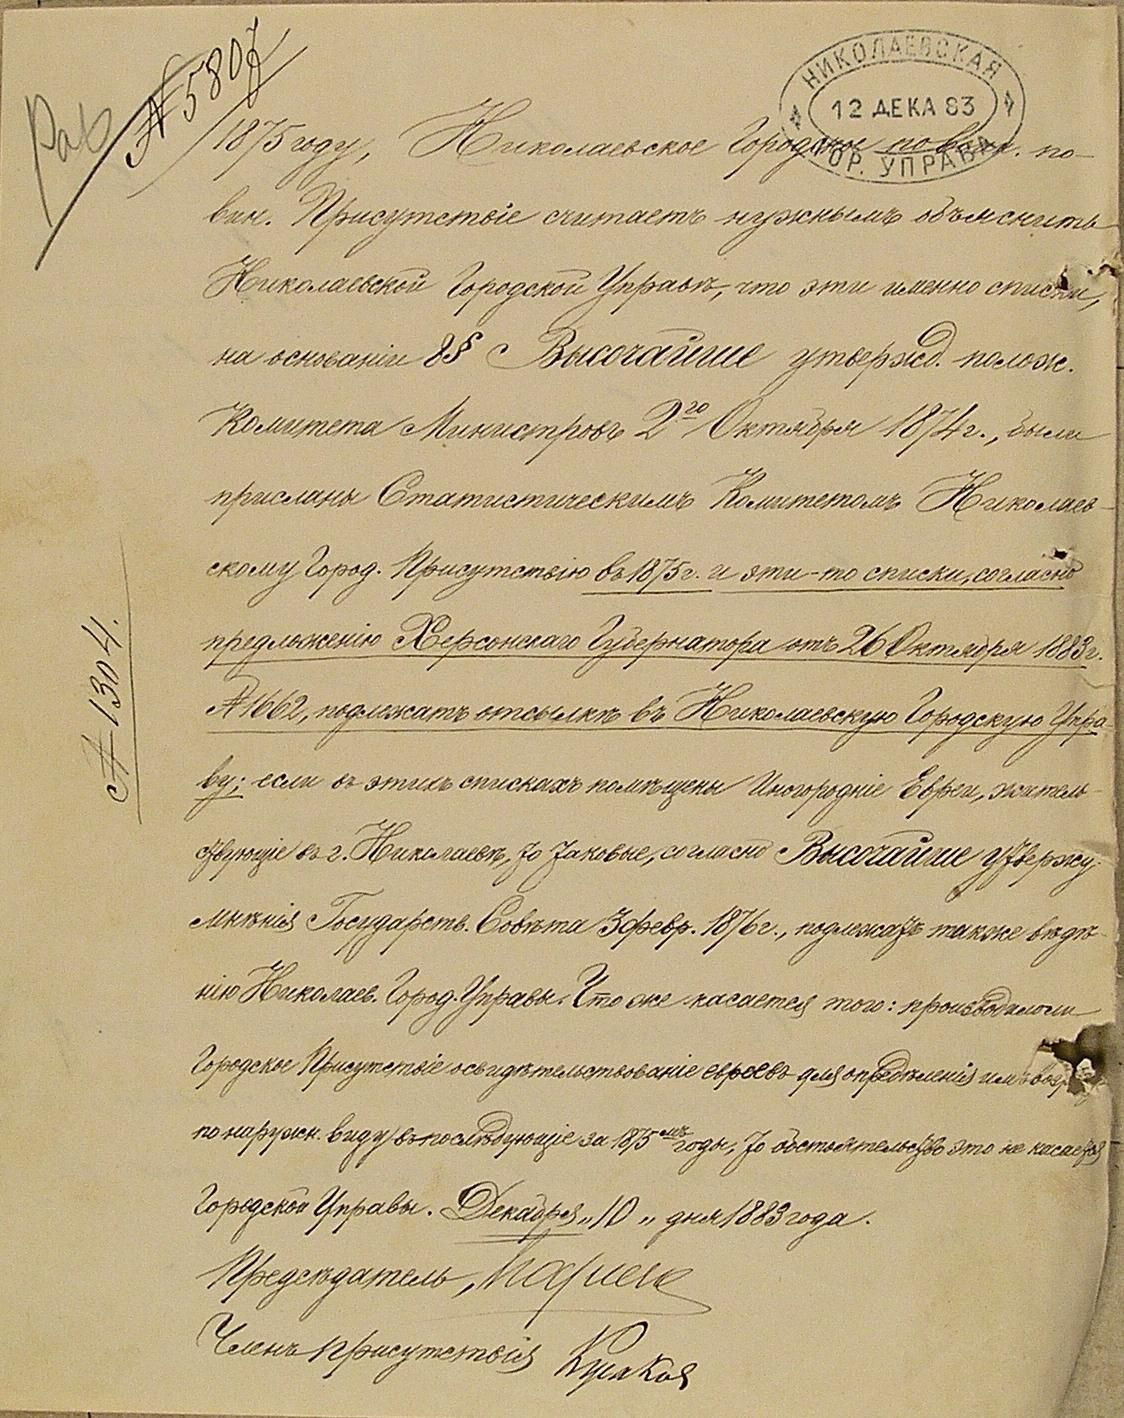 № 5807
НИКОЛАЕВСКАЯ
12 ДЕКА 83
ГОР. УПРАВА
1875 году, Николаевское Городское по воин. по-
вин. Присутствіе считаетъ нужнымъ объяснить
Николаевской Городской Управѣ, что эти именно списки,
на основаніи 8 § Высочайше утвержд. полож.
Комитета Министровъ 2го Октября 1874 г., были
присланы Статистическимъ Комитетомъ Николаев-
скому Город. Присутствію въ 1875 г. и эти-то списки, согласно
предложенію Херсонскаго Губернатора отъ 26 Октября 1883 г.
№ 1662, подлежатъ отсылкѣ въ Николаевскую Городскую Упра-
ву; если въ этихъ спискахъ помѣщены Иногородніе Евреи, житель-
ствующіе въ г. Николаевѣ, то таковые, согласно Высочайше утвержд.
мнѣнія Государств. Совѣта 3 февр. 1876 г., подлежатъ также вѣдѣ-
нію Николаев. Город. Управы. Что же касается того: производило ли
Городское Присутствіе освидѣтельствованіе евреевъ для опредѣленія имъ
по наружн. виду въ послѣдующіе за 1875мъ годы, то обстоятельство это не касается
Городской Управы. Декабря „10„ дня 1883 года.
Предсѣдатель,
Членъ присутствія
№ 1304.